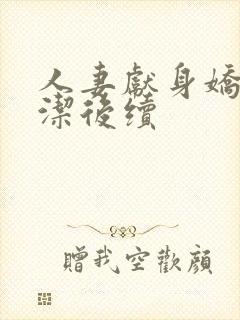 人妻獻身嬌
潔後續
贈我空歡顏